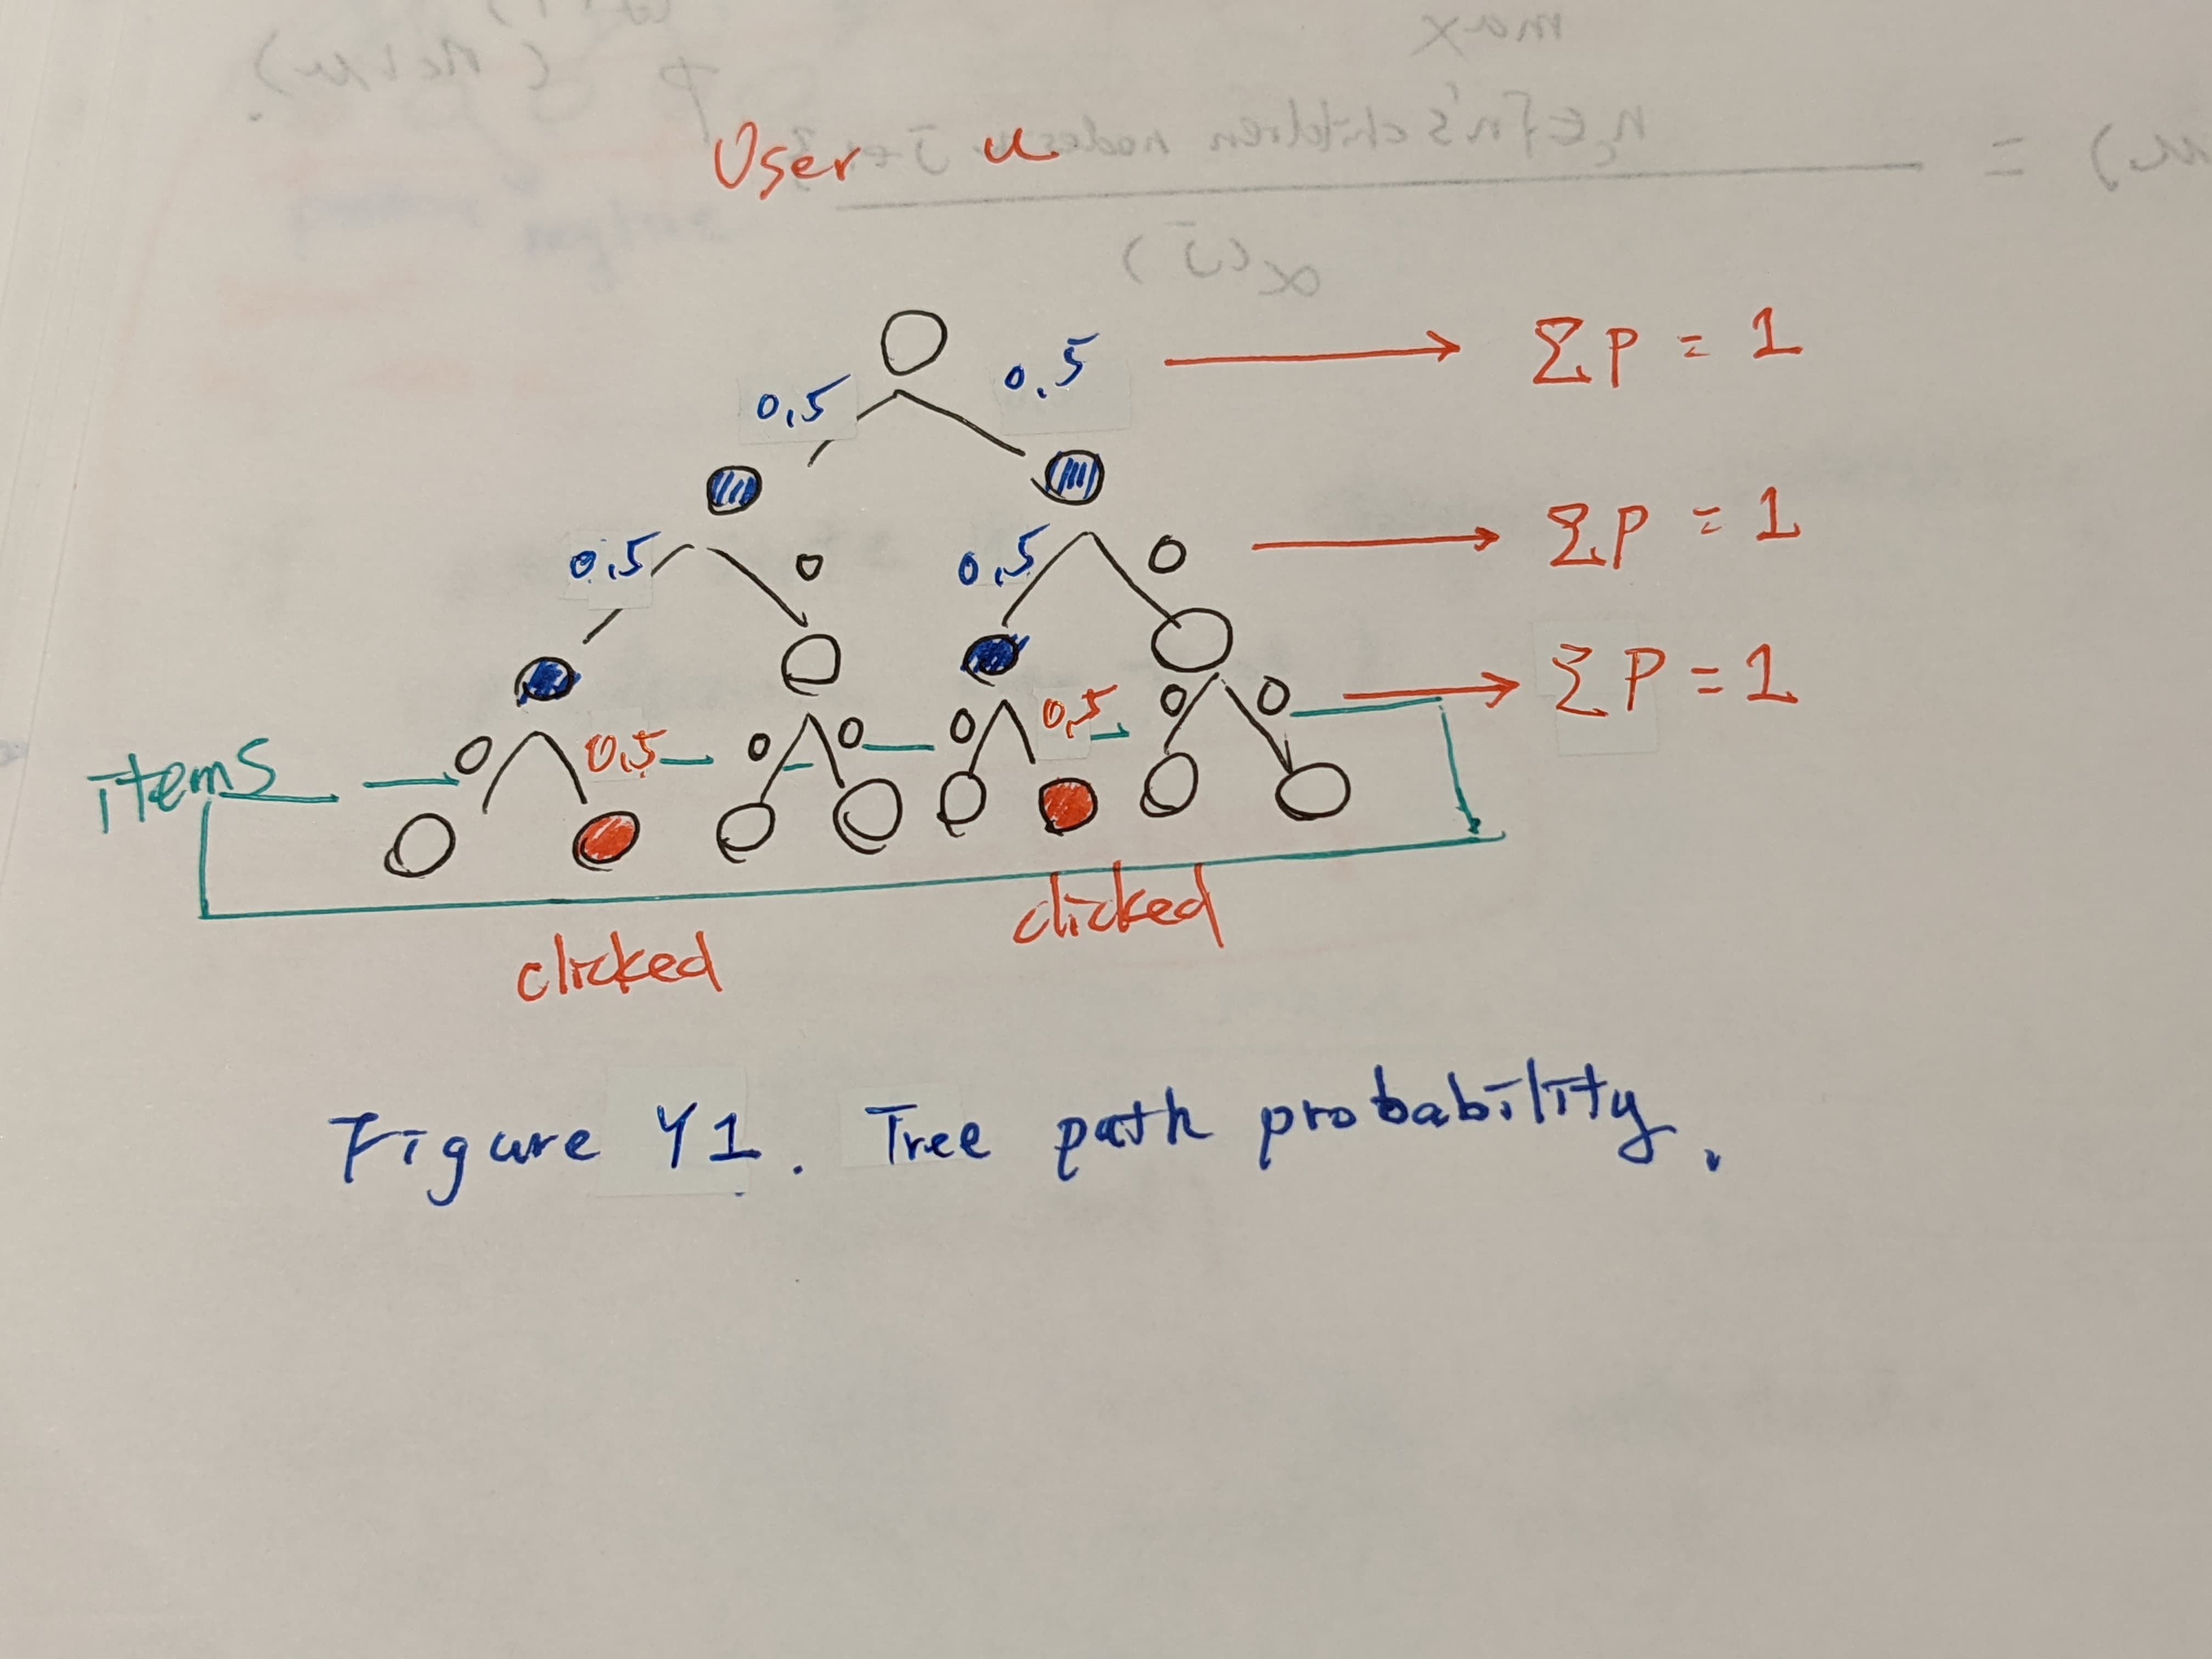 User u
0.5 0.5 → Σp = 1
0.5 0 0.5 0 → Σp = 1
0 0.5 0 0 0 0.5 0 0 → Σp = 1
items
clicked clicked
Figure Y1. Tree path probability.